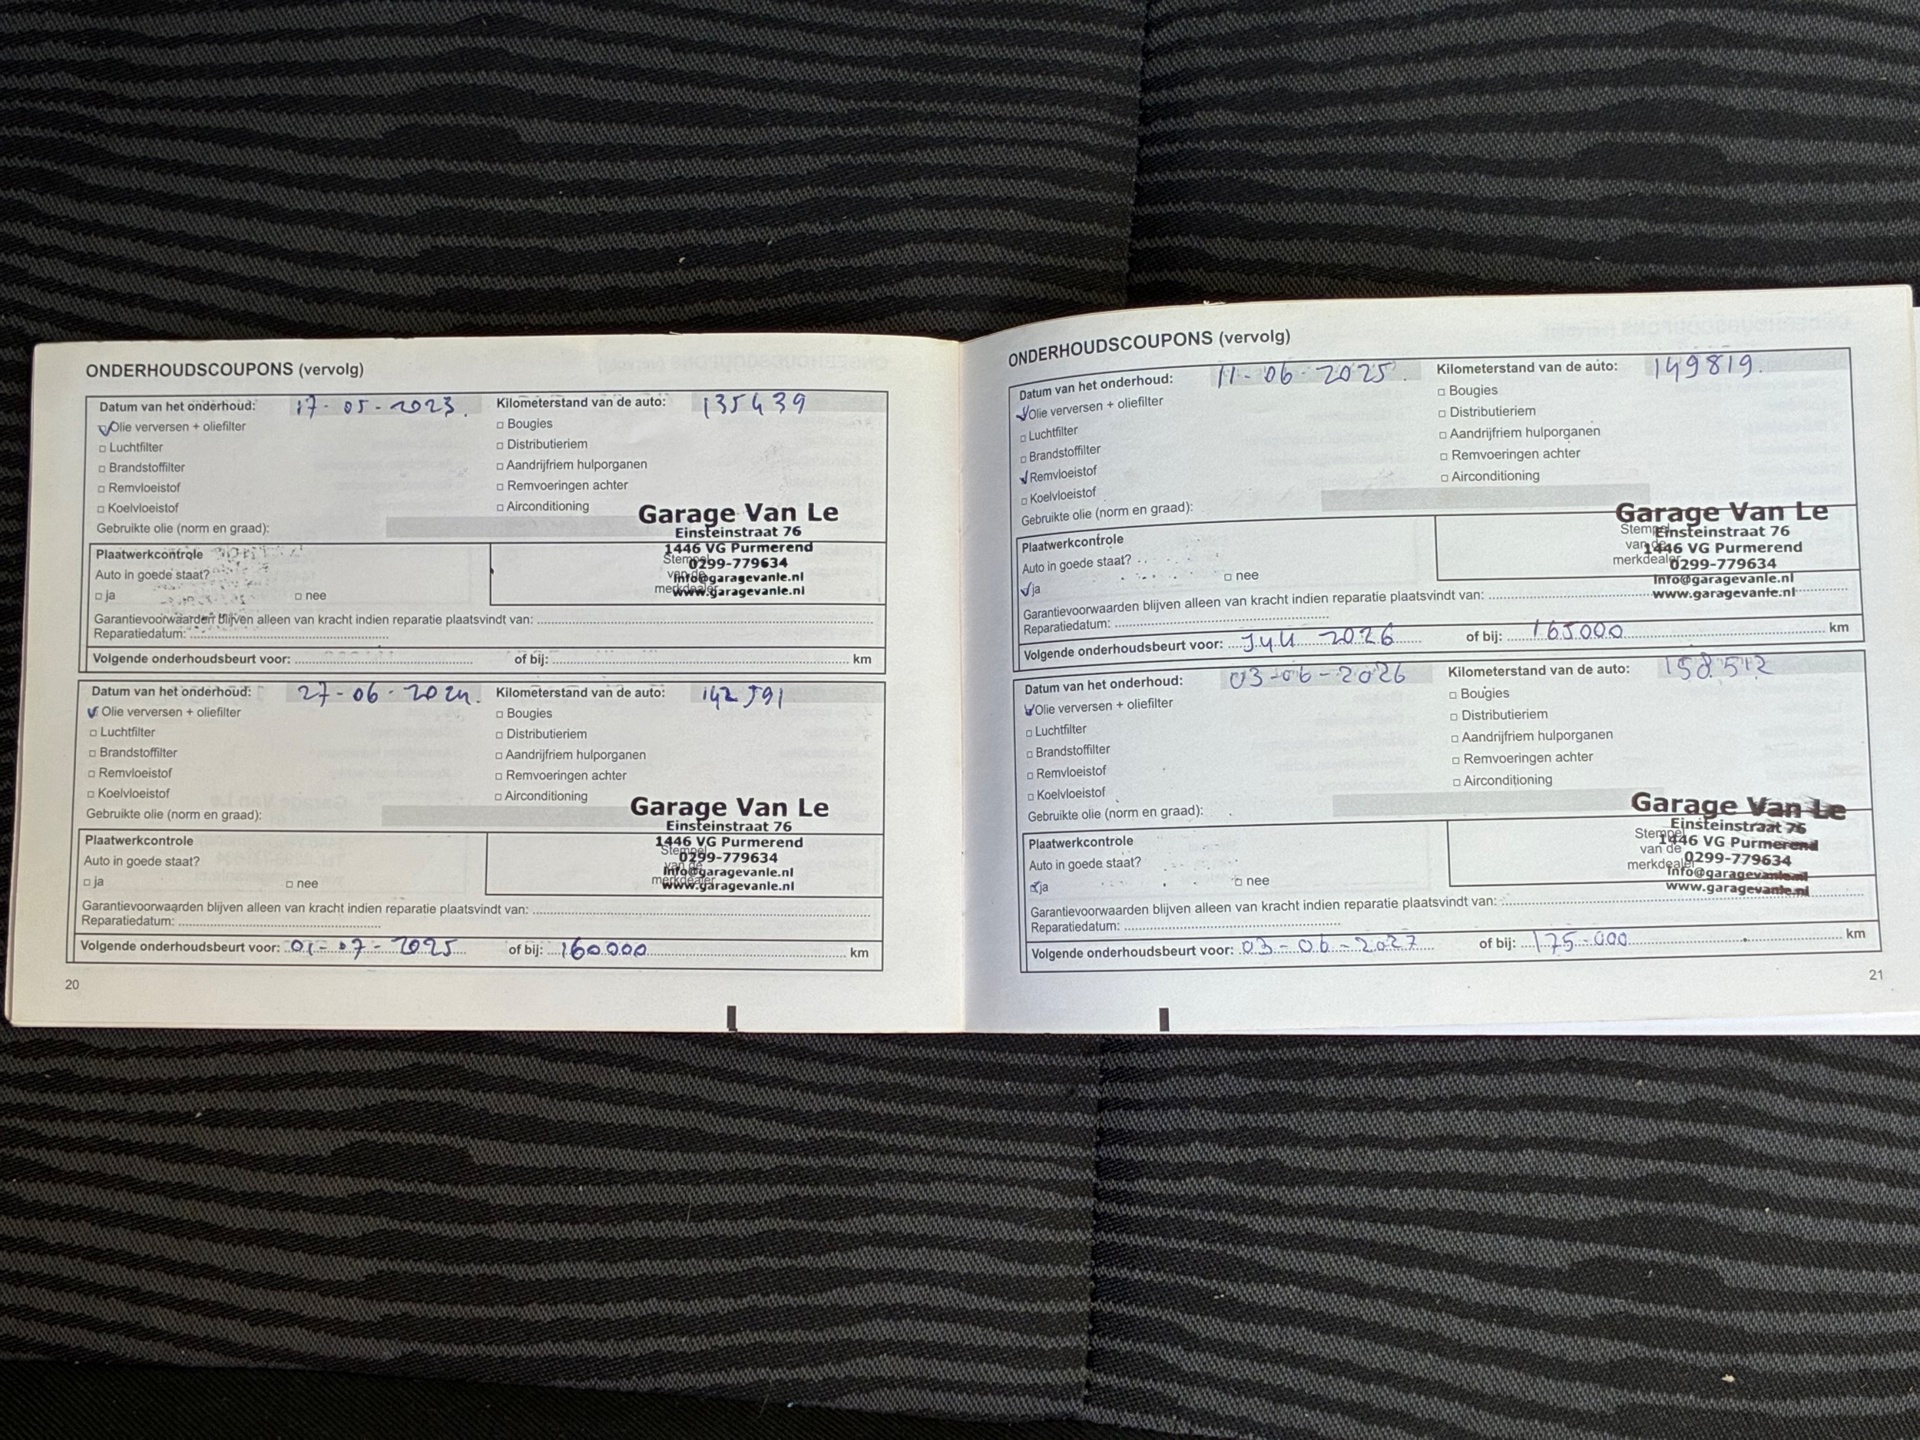 ONDERHOUDSCOUPONS (vervolg)
Datum van het onderhoud: 17-05-2023. Kilometerstand van de auto: 135439
Olie verversen + oliefilter
Bougies
Luchtfilter
Distributieriem
Brandstoffilter
Aandrijfriem hulporganen
Remvloeistof
Remvoeringen achter
Koelvloeistof
Airconditioning
Gebruikte olie (norm en graad):
Garage Van Le
Einsteinstraat 76
1446 VG Purmerend
0299-779634
info@garagevanle.nl
www.garagevanle.nl
Stempel
van de
merkdealer
Plaatwerkcontrole
Auto in goede staat?
ja nee
Garantievoorwaarden blijven alleen van kracht indien reparatie plaatsvindt van:
Reparatiedatum:
Volgende onderhoudsbeurt voor: of bij: km
Datum van het onderhoud: 27-06-2024. Kilometerstand van de auto: 142591
Olie verversen + oliefilter
Bougies
Luchtfilter
Distributieriem
Brandstoffilter
Aandrijfriem hulporganen
Remvloeistof
Remvoeringen achter
Koelvloeistof
Airconditioning
Gebruikte olie (norm en graad):
Garage Van Le
Einsteinstraat 76
1446 VG Purmerend
0299-779634
info@garagevanle.nl
www.garagevanle.nl
Stempel
van de
merkdealer
Plaatwerkcontrole
Auto in goede staat?
ja nee
Garantievoorwaarden blijven alleen van kracht indien reparatie plaatsvindt van:
Reparatiedatum:
Volgende onderhoudsbeurt voor: 01-07-2025 of bij: 160000 km
20
ONDERHOUDSCOUPONS (vervolg)
Datum van het onderhoud: 11-06-2025. Kilometerstand van de auto: 149819.
Olie verversen + oliefilter
Bougies
Luchtfilter
Distributieriem
Brandstoffilter
Aandrijfriem hulporganen
Remvloeistof
Remvoeringen achter
Koelvloeistof
Airconditioning
Gebruikte olie (norm en graad):
Garage Van Le
Einsteinstraat 76
1446 VG Purmerend
0299-779634
info@garagevanle.nl
www.garagevanle.nl
Stempel
van de
merkdealer
Plaatwerkcontrole
Auto in goede staat?
ja nee
Garantievoorwaarden blijven alleen van kracht indien reparatie plaatsvindt van:
Reparatiedatum:
Volgende onderhoudsbeurt voor: 2026 of bij: 165000 km
Datum van het onderhoud: 03-06-2026 Kilometerstand van de auto: 158.512
Olie verversen + oliefilter
Bougies
Luchtfilter
Distributieriem
Brandstoffilter
Aandrijfriem hulporganen
Remvloeistof
Remvoeringen achter
Koelvloeistof
Airconditioning
Gebruikte olie (norm en graad):
Garage Van Le
Einsteinstraat 76
1446 VG Purmerend
0299-779634
info@garagevanle.nl
www.garagevanle.nl
Stempel
van de
merkdealer
Plaatwerkcontrole
Auto in goede staat?
ja nee
Garantievoorwaarden blijven alleen van kracht indien reparatie plaatsvindt van:
Reparatiedatum:
Volgende onderhoudsbeurt voor: 03-06-2027 of bij: 175-000 km
21